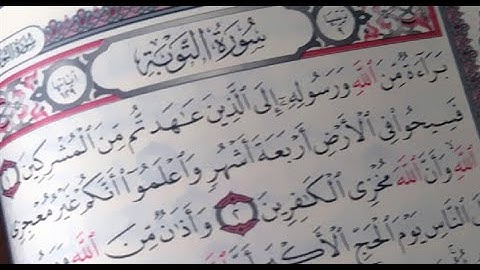 سُورَةُ التَّوْبَةِ
ترتيبها ٩
آياتها ١٢٩
بَرَآءَةٌ مِّنَ ٱللَّهِ وَرَسُولِهِۦٓ إِلَى ٱلَّذِينَ عَٰهَدتُّم مِّنَ ٱلْمُشْرِكِينَ ١
فَسِيحُوا۟ فِى ٱلْأَرْضِ أَرْبَعَةَ أَشْهُرٍ وَٱعْلَمُوٓا۟ أَنَّكُمْ غَيْرُ مُعْجِزِى
ٱللَّهِ وَأَنَّ ٱللَّهَ مُخْزِى ٱلْكَٰفِرِينَ ٢ وَأَذَٰنٌ مِّنَ ٱللَّهِ
ٱلنَّاسِ يَوْمَ ٱلْحَجِّ ٱلْأَكْبَرِ أَنَّ